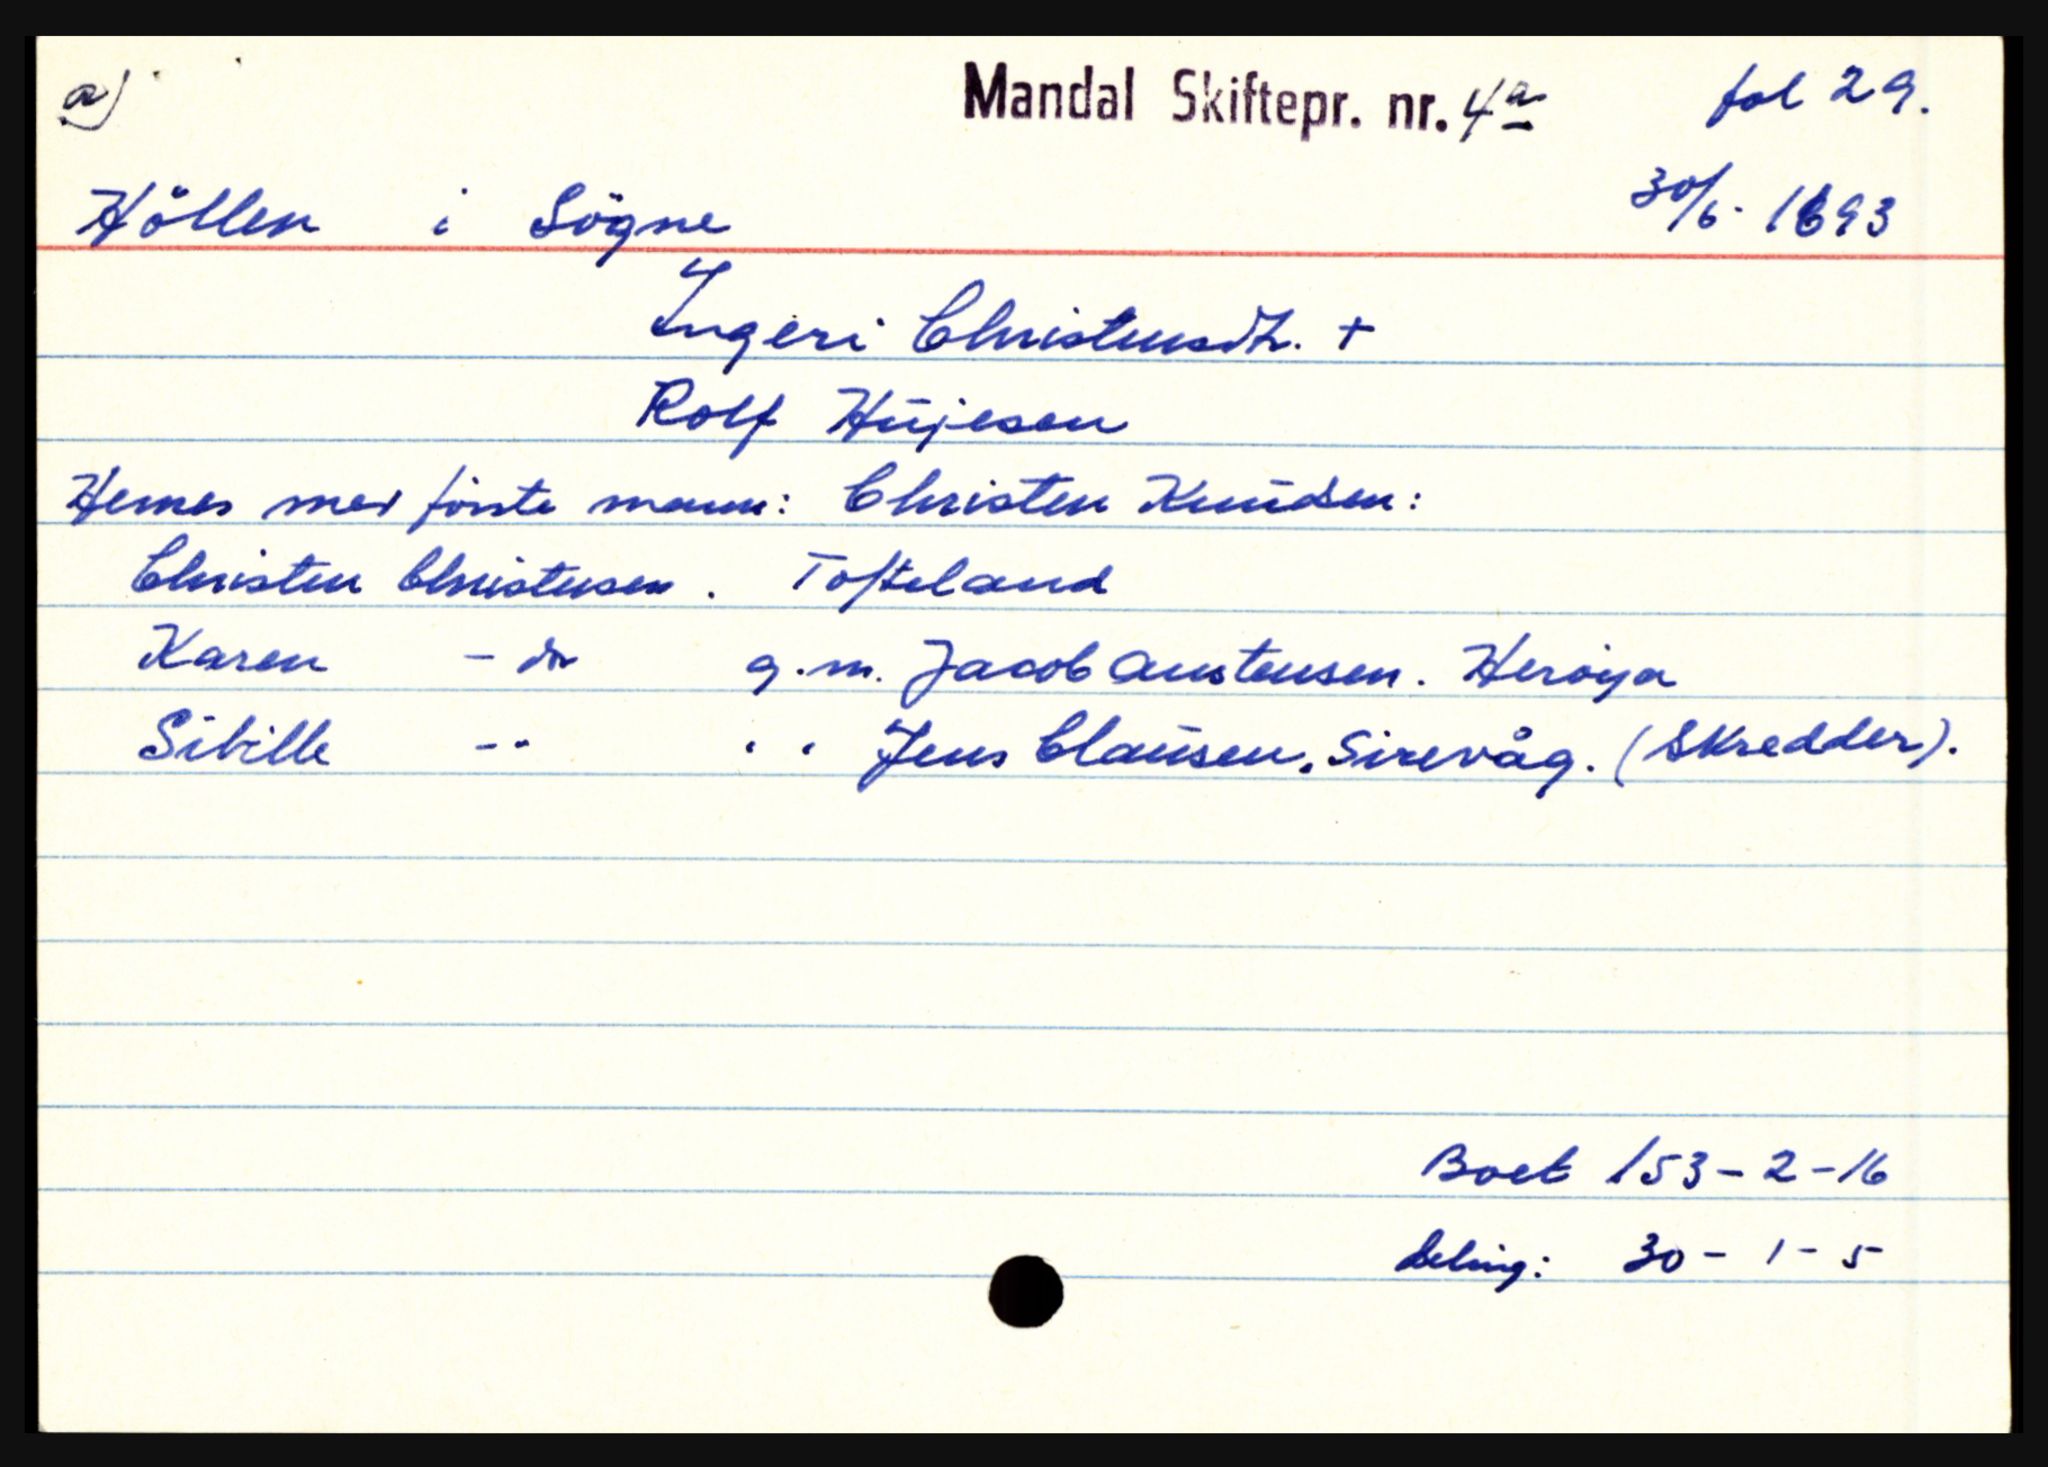 a) Mandal Skiftepr. nr. 4a fol 29.
Höllen i Sögne 30/6- 1693
Ingeri Christensdtr. +
Rolf Hüjesen
Hennes med förste mann: Christen Knüdsen:
Christen Christensen. Tofteland
Karen - dtr g.m. Jacob Austensen. Heröya
Sibille - " " " Jens Claüsen. Sirevåg. (Skredder).
Boet 153 - 2 - 16
deling: 30 - 1 - 5